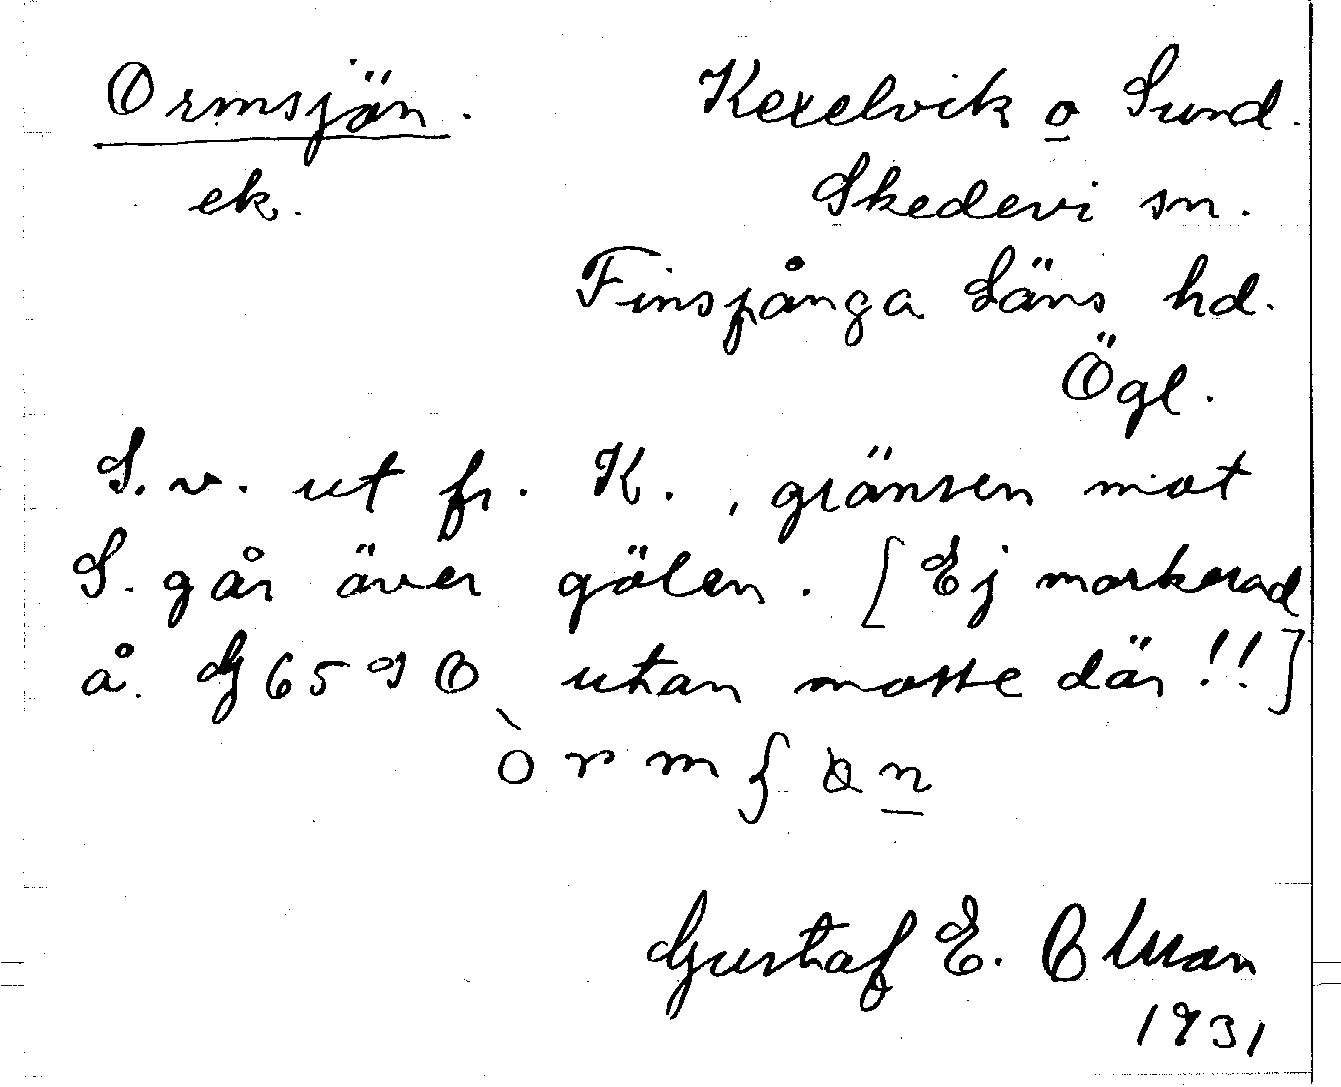 Ormsjön. Kexelvik o Sund.
ek. Skedevi sn.
Finspånga Läns hd.
Ögl.
S.v. ut fr. K., gränsen mot
S. går över gölen. [Ej markerad
å. G 65 utan mosse där!!]
Gustaf E. Olsson
1931